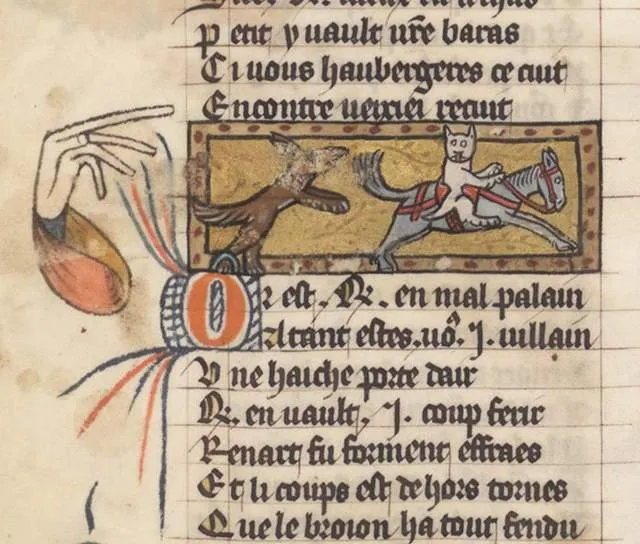 petit y uault ure baras
Ci uous haubergeres ce cuit
Encontre recuit
Or est .R. en mal palain
Atant estes.uoˢ.J. uillain
Vne haiche porte dair
.R. en uault .J. coup ferir
Renart fu forment effraes
Et li coups est dehors tornes
Que le broion ha tout fendu